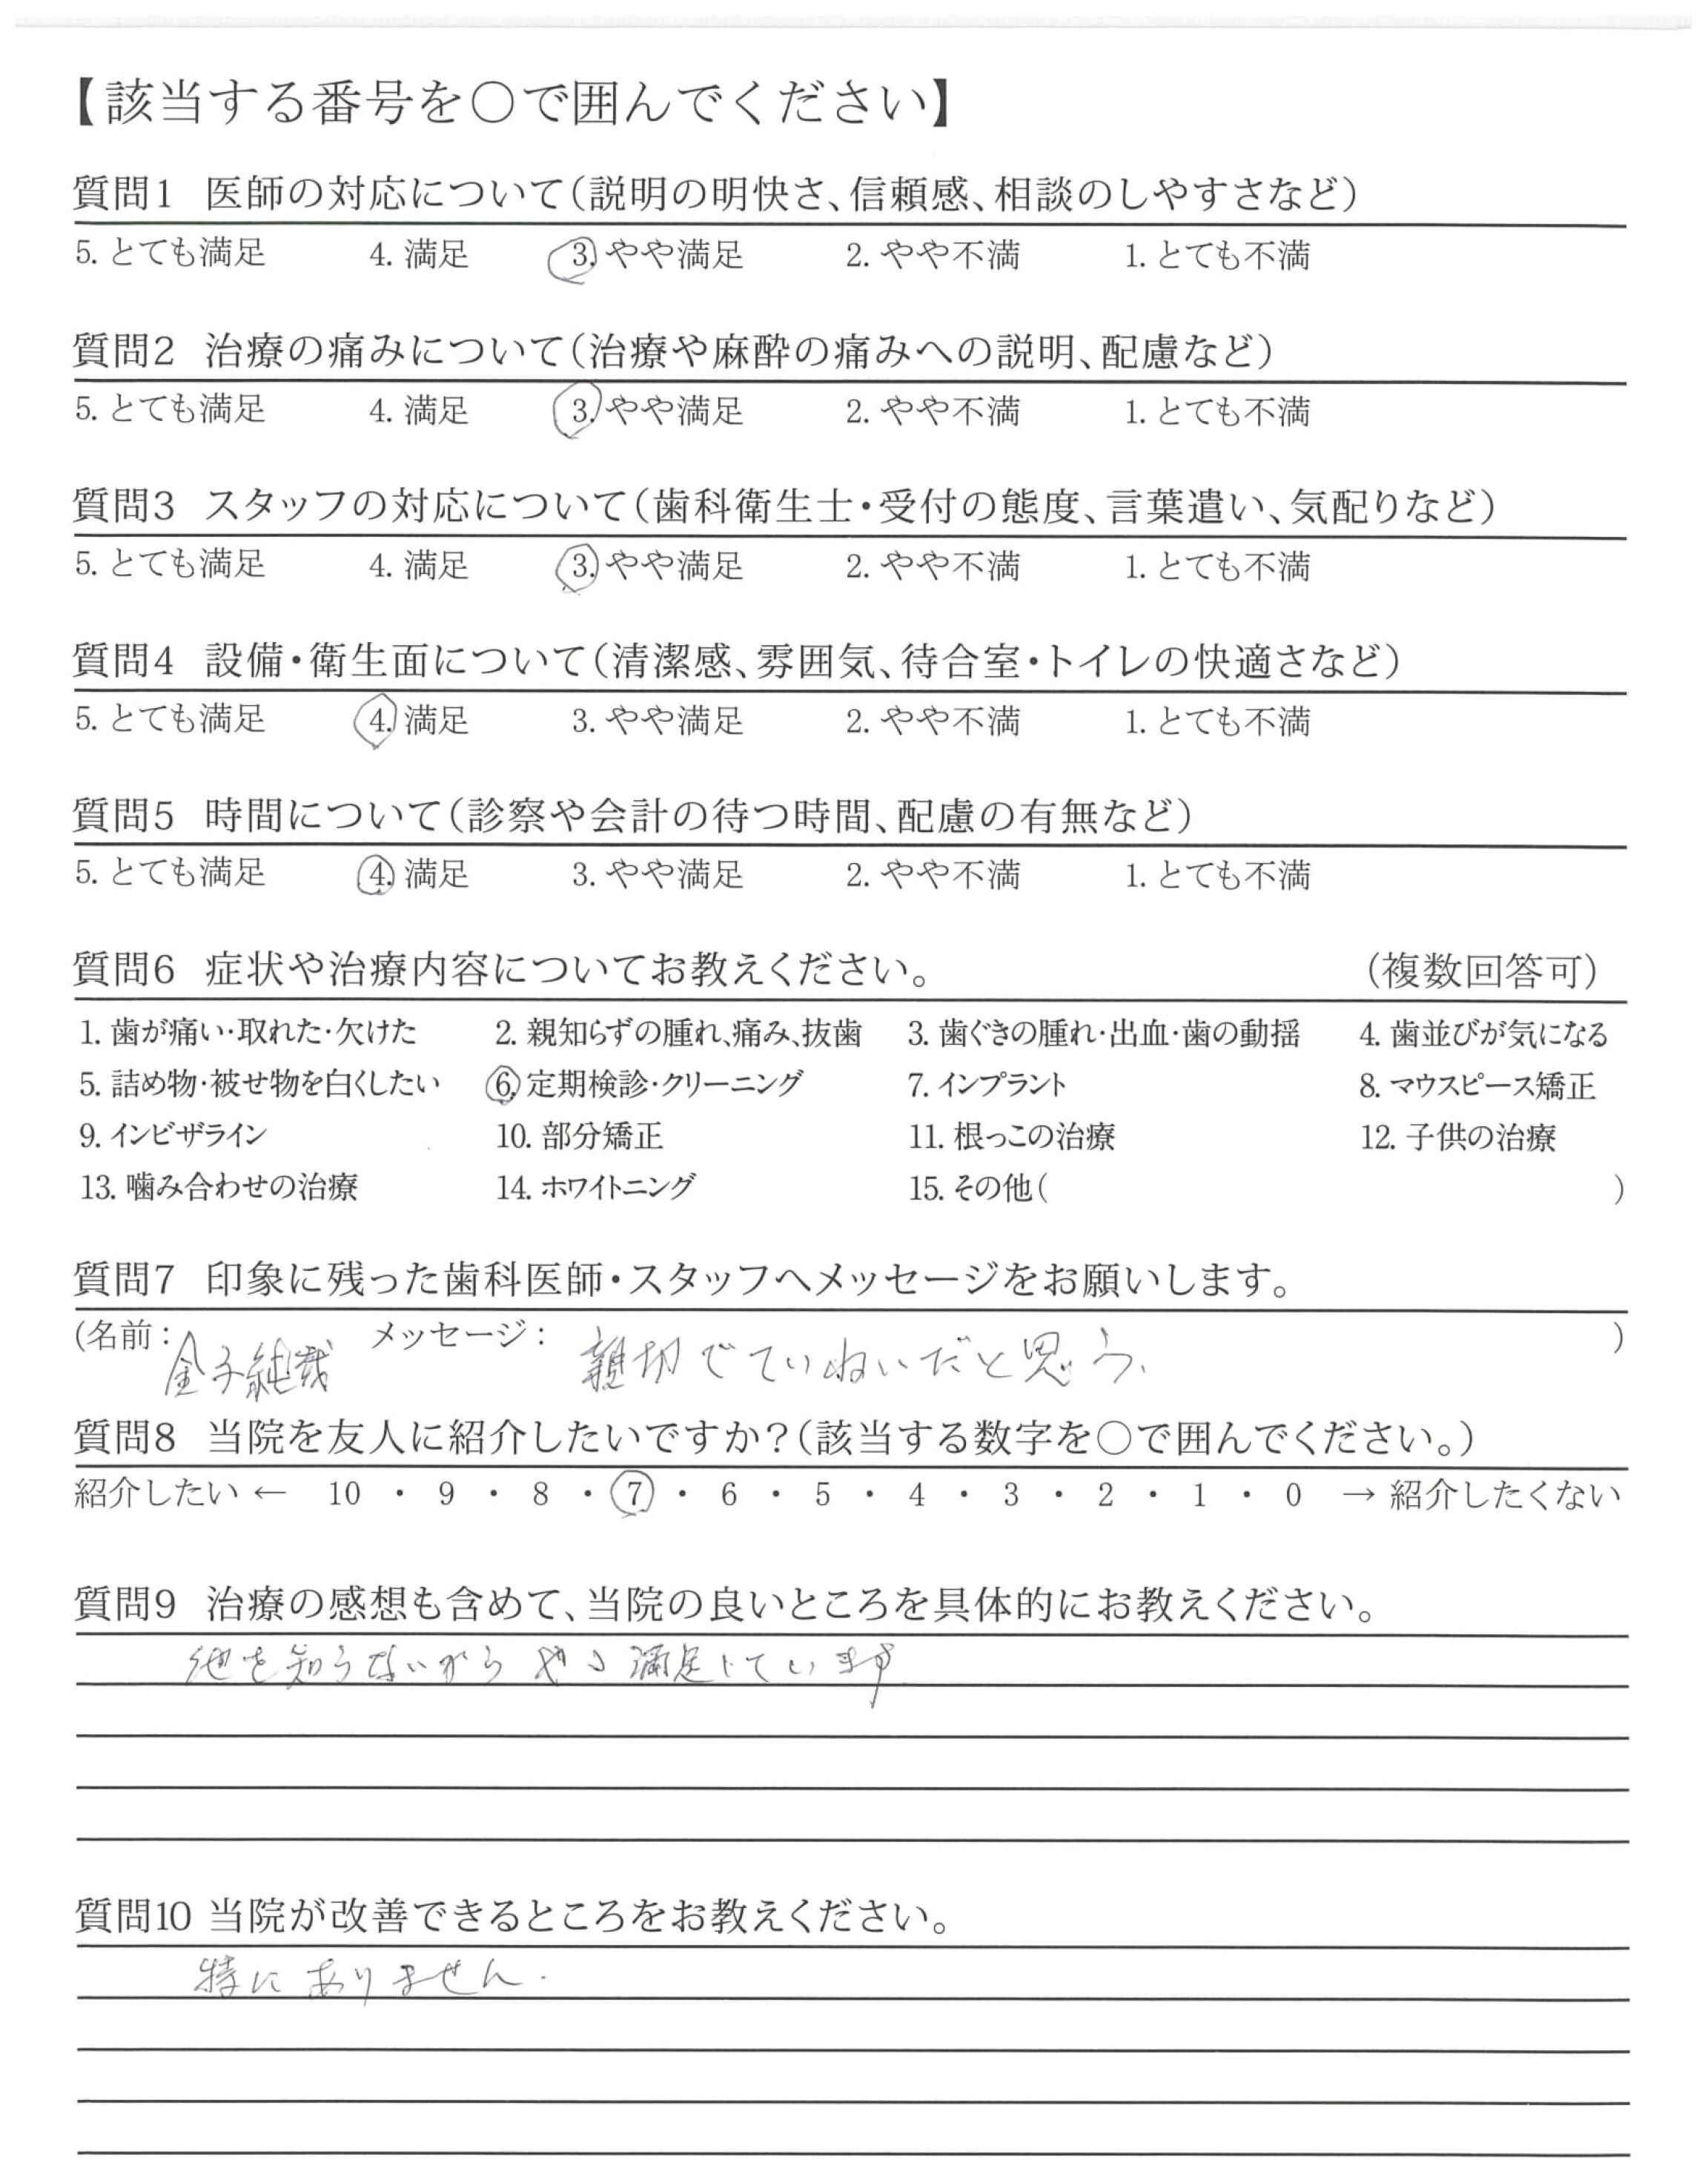 【該当する番号を〇で囲んでください】
質問1 医師の対応について(説明の明快さ、信頼感、相談のしやすさなど)
5. とても満足 4. 満足 3. やや満足 2. やや不満 1. とても不満
質問2 治療の痛みについて(治療や麻酔の痛みへの説明、配慮など)
5. とても満足 4. 満足 3. やや満足 2. やや不満 1. とても不満
質問3 スタッフの対応について(歯科衛生士・受付の態度、言葉遣い、気配りなど)
5. とても満足 4. 満足 3. やや満足 2. やや不満 1. とても不満
質問4 設備・衛生面について(清潔感、雰囲気、待合室・トイレの快適さなど)
5. とても満足 4. 満足 3. やや満足 2. やや不満 1. とても不満
質問5 時間について(診察や会計の待つ時間、配慮の有無など)
5. とても満足 4. 満足 3. やや満足 2. やや不満 1. とても不満
質問6 症状や治療内容についてお教えください。 (複数回答可)
1. 歯が痛い・取れた・欠けた 2. 親知らずの腫れ、痛み、抜歯 3. 歯ぐきの腫れ・出血・歯の動揺 4. 歯並びが気になる
5. 詰め物・被せ物を白くしたい 6. 定期検診・クリーニング 7. インプラント 8. マウスピース矯正
9. インビザライン 10. 部分矯正 11. 根っこの治療 12. 子供の治療
13. 噛み合わせの治療 14. ホワイトニング 15. その他( )
質問7 印象に残った歯科医師・スタッフへメッセージをお願いします。
(名前: 金子純哉 メッセージ: 親切でていねいだと思う、 )
質問8 当院を友人に紹介したいですか?(該当する数字を〇で囲んでください。)
紹介したい ← 10 ・ 9 ・ 8 ・ 7 ・ 6 ・ 5 ・ 4 ・ 3 ・ 2 ・ 1 ・ 0 → 紹介したくない
質問9 治療の感想も含めて、当院の良いところを具体的にお教えください。
他を知らないから やゝ満足しています
質問10 当院が改善できるところをお教えください。
特にありません.